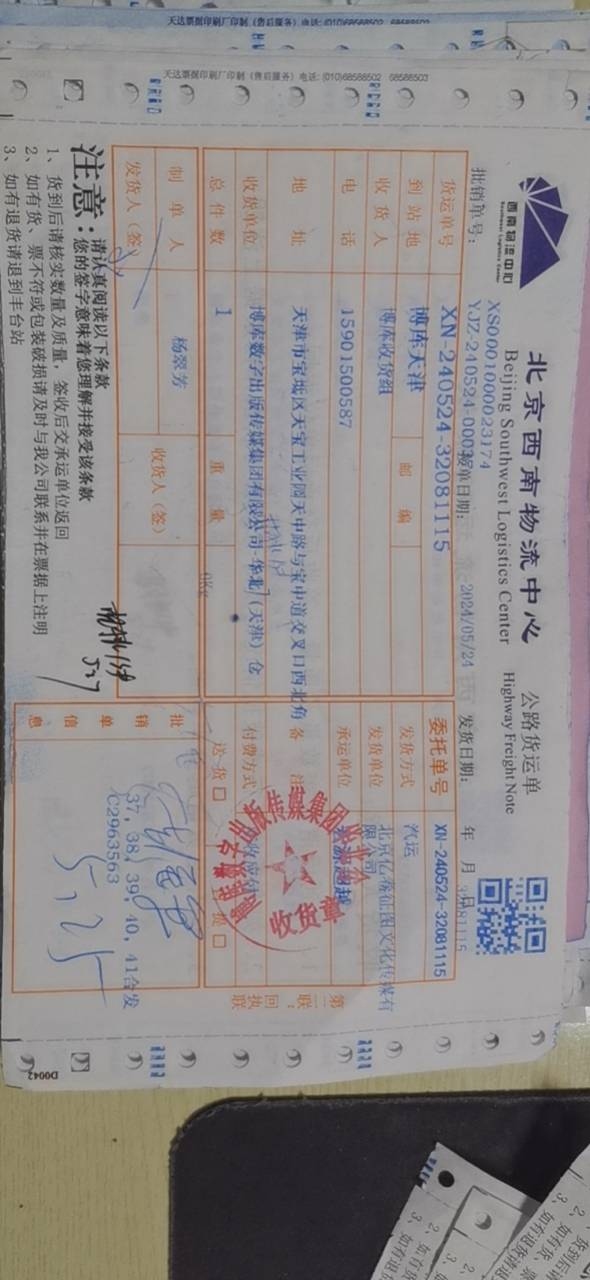 天达票据印刷厂印制（售后服务）电话：(010)68588502 68588503
天达票据印刷厂印制（售后服务）电话：(010)68588502 68588503
西南物流中心
Southwest Logistics Center
北京西南物流中心 公路货运单
Beijing Southwest Logistics Center Highway Freight Note
XS0001000023174
批销单号： YJZ-240524-0003 接单日期： 2024/05/24 发货日期： 年 月 日 32081115
货运单号 XN-240524-32081115 委托单号 XN-240524-32081115
到站地 博库天津 邮编 发货方式 汽运
收货人 博库收货组 发货单位 北京亿卷征图文化传媒有限公司
电话 15901500587 承运单位
地址 天津市宝坻区天宝工业园天中路与宝中道交叉口西北角 备注
收货单位 博库数字出版传媒集团有限公司-华北（天津）仓 付费方式
总件数 1 重量 0Kg 送货□ 自提□
制单人 杨翠芳 收货人（签）
发货人（签）
批销单信息
37，38，39，40，41合发
C2963563
5.25
出版传媒集团
收货章
第二联：回执联
注意： 请认真阅读以下条款
您的签字意味着您理解并接受该条款
5.27
1、货到后请核实数量及质量，签收后交承运单位返回
2、如有货、票不符或包装破损请及时与我公司联系并在票据上注明
3、如有退货请退到丰台站
D0042